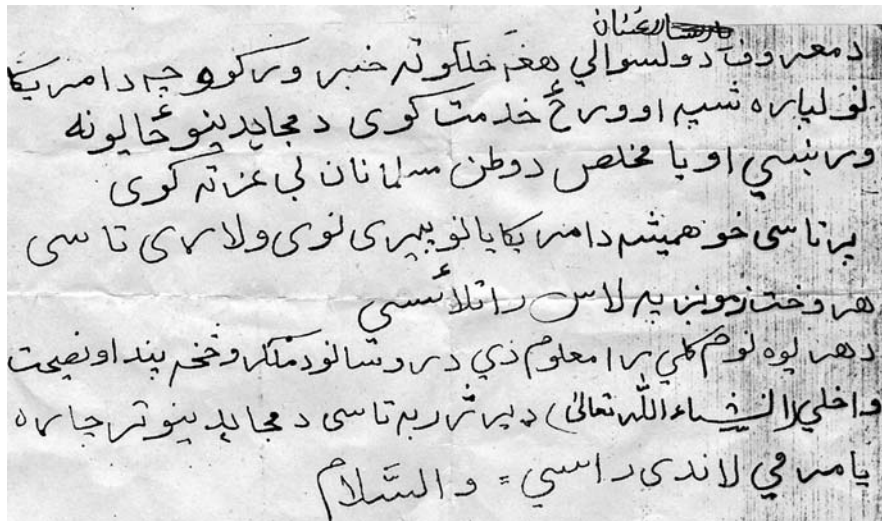 د معروف د ولسوالي هغه خلکو ته خبر ورکوو چه د امریکا
لپاره شپه او ورځ خدمت کوی د مجاهدینو ځایونه
ورښیي او یا مخلص د وطن مسلمانان بی عزته کوی
پر تاسی خو همیشه د امریکایانو بیری نوی ولاړی تاسی
هر وخت زمونږ په لاس راتلای سی
د هر یوه نوم کلي برا معلوم دي د روشانو د ملګرو څخه پند او نصیحت
واخلي (انشاءالله تعالی) ډیر ژر به تاسی د مجاهدینو تر چاړه
یا مرمي لاندی راسي = والسّلام